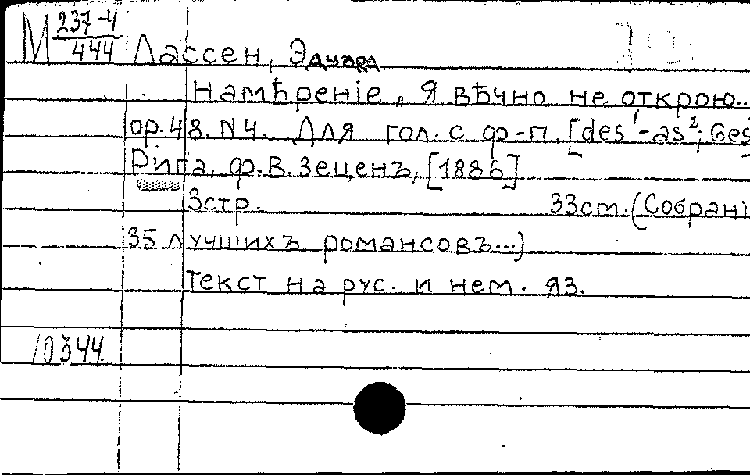 М 237-4
444
Лассен, Эдуард
Намѣреніе, Я вѣчно не открою...
ор. 48. N4. Для гол. с ф-п. [des¹-as²; Ges
Рига, ф. В. Зеценъ, [1886]
3стр. 33cm. (Собрані
35 лучшихъ романсовъ...)
Текст на рус. и нем. яз.
10344